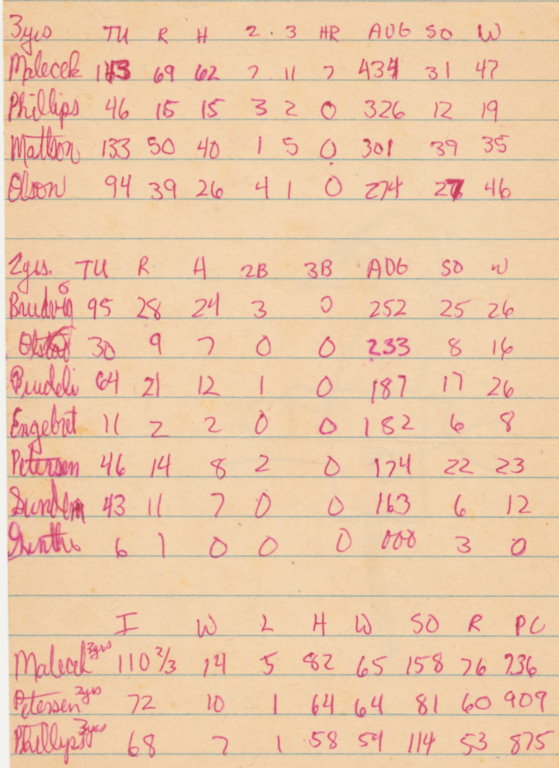 3yrs TU R H 2 . 3 HR AVG SO W
Malecek 143 69 62 7 11 7 434 31 47
Phillips 46 15 15 3 2 0 326 12 19
Mattson 133 50 40 1 5 0 301 39 35
Olson 94 39 26 4 1 0 274 27 46
2yrs. TU R H 2B 3B AVG SO W
Brudvig 95 28 24 3 0 252 25 26
30 9 7 0 0 233 8 16
64 21 12 1 0 187 17 26
Engebret 11 2 2 0 0 182 6 8
Petersen 46 14 8 2 0 174 22 23
43 11 7 0 0 163 6 12
6 1 0 0 0 000 3 0
I W L H W SO R PC
Malecek 3yrs 110 2/3 14 5 82 65 158 76 736
Petersen 2yrs 72 10 1 64 64 81 60 909
Phillips 3yrs 68 7 1 58 59 114 53 875